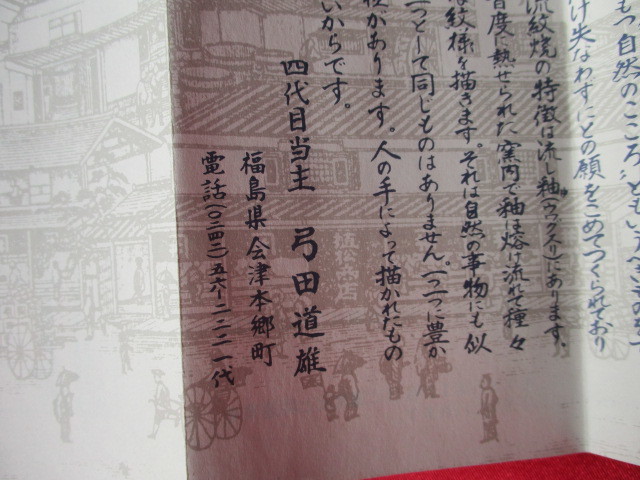 もつ自然のこころ〟ともいうべきもの
け失なわずにとの願をこめてつくられており
流紋焼の特徴は流し釉(ウワグスリ)にあります。
百度、熱せられた窯内で釉は熔け流れて種々
な紋様を描きます。それは自然の事物にも似
一つとして同じものはありません。一つ一つに豊か
があります。人の手によって描かれたもの
いからです。
四代目当主 弓田道雄
福島県会津本郷町
電話(〇二四二)五六―二二二一代